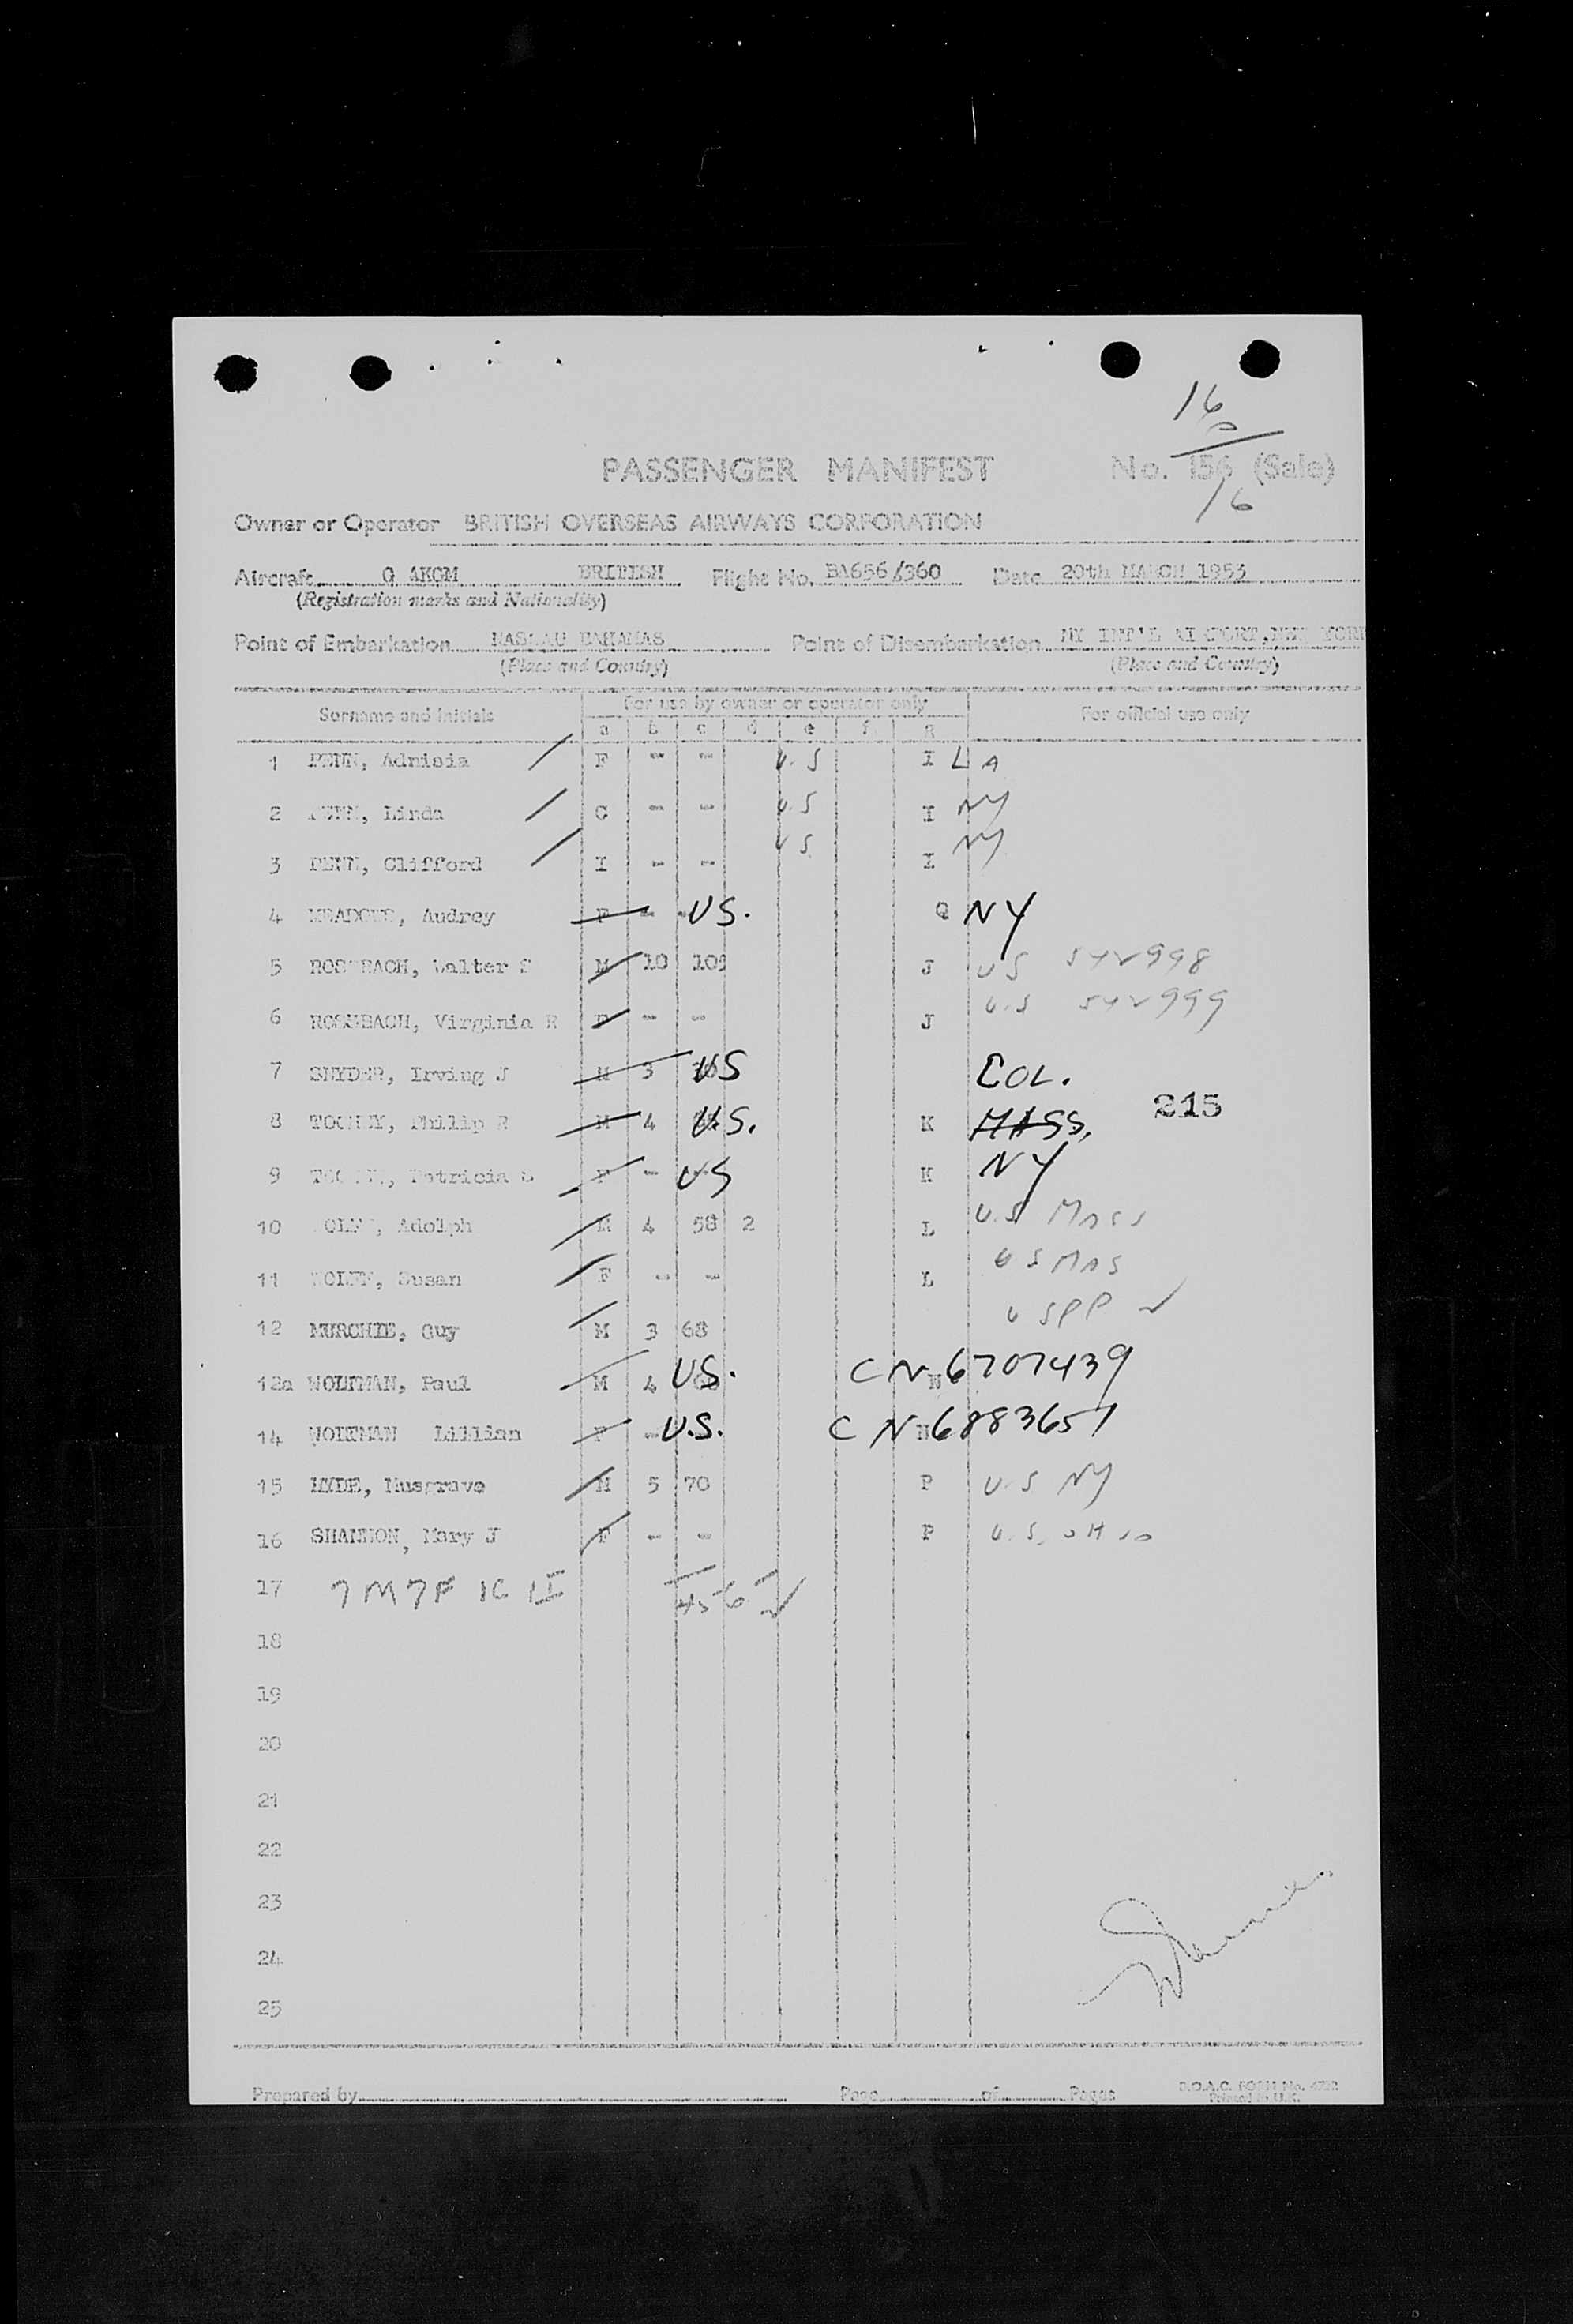 16
0
PASSENGER MANIFEST No. 156 (Sale)
16
Owner or Operator BRITISH OVERSEAS AIRWAYS CORPORATION
Aircraft G AKGM BRITISH Flight No. BA656/360 Date 20th MARCH 1953
(Registration marks and Nationality)
Point of Embarkation NASSAU BAHAMAS Point of Disembarkation NY INT'L AIRPORT, NEW YORK
(Place and Country) (Place and Country)
Surname and initials For use by owner or operator only For official use only
a b c d e f g
1 PENN, Admisia F - - U.S I LA
2 PENN, Linda C - - U.S I NY
3 PENN, Clifford I - - U S I NY
4 MEADOWS, Audrey F - - US. Q NY
5 ROSSBACH, Walter S M 10 109 J US 542998
6 ROSSBACH, Virginia R F - - J U.S 542999
7 SNYDER, Irving J M 3 US COL.
8 TOOMEY, Philip R M 4 U.S. K MASS.
215
9 Patricia F - US K NY
10 Adolph M 4 58 2 L U.S Mass
11 Susan F - - L U S Mas
12 MURCHIE, Guy M 3 68 U S PP ✓
12a WOLTMAN, Paul M 4 US. N CN 6707439
14 WOLTMAN Lillian F - U.S. N CN 6883651
15 HYDE, Musgrave M 5 70 P U.S NY
16 SHANNON, Mary J F - - P U.S. OHIO
17 7M 7F 1C 1I 456 ✓
18
19
20
21
22
23
24
25
Prepared by Page of Pages B.O.A.C. FORM No. 4722
Printed in U.K.